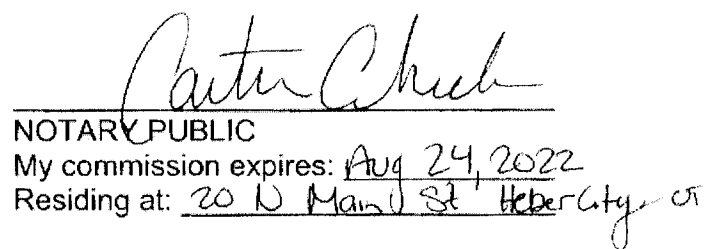 NOTARY PUBLIC
My commission expires: Aug 24, 2022
Residing at: 20 N Main St Heber City, UT